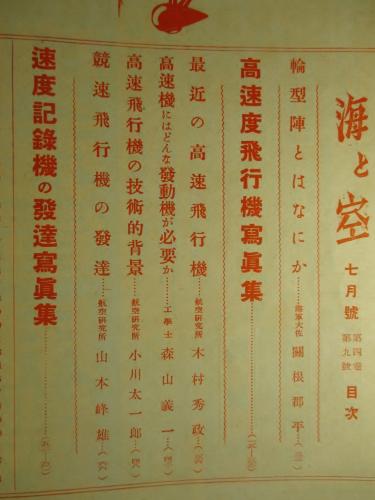 海と空 七月號 第四卷 第九號 目次
輪型陣とはなにか 海軍大佐 關根郡平
高速度飛行機寫眞集
最近の高速飛行機 航空硏究所 木村秀政
高速機にはどんな發動機が必要か 工學士 森山義一
高速飛行機の技術的背景 航空硏究所 小川太一郎
競速飛行機の發達 航空硏究所 山本峰雄
速度記錄機の發達寫眞集